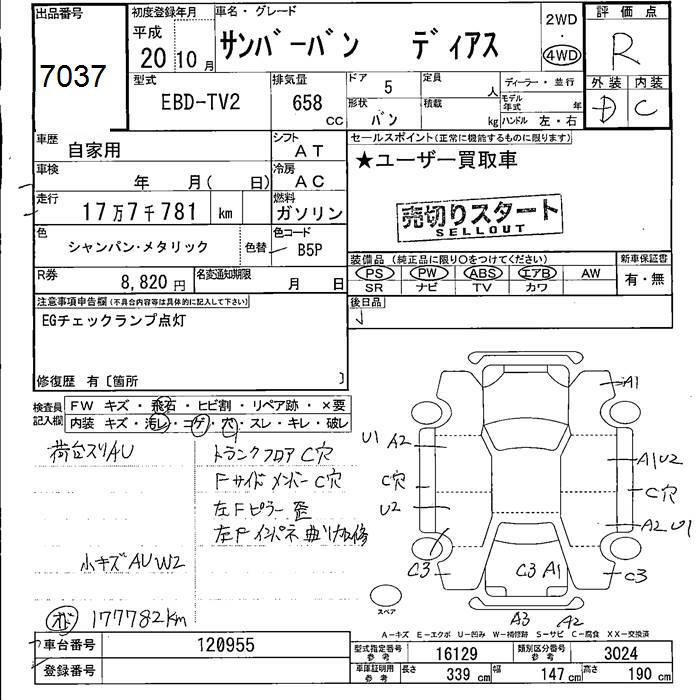 出品番号 初度登録年月 車名・グレード 2WD 評価点
7037 平成 20年 10月 サンバーバン ディアス 4WD R
型式 排気量 ドア 5 定員 人 ディーラー・並行 外装 内装
EBD-TV2 658 CC 形状 バン 積載 kg モデル年式 年 ハンドル 左・右 D C
車歴 自家用 シフト AT セールスポイント(正常に機能するものに限ります)
車検 年 月( 日) 冷房 AC ★ユーザー買取車
走行 17万7千781 km 燃料 ガソリン 売切りスタート
SELLOUT
色 シャンパン・メタリック 色替 色コード B5P
装備品 (純正品に限り○をつけてください) 新車保証書
R券 8,820円 名変通知期限 月 日 PS PW ABS エアB AW 有・無
SR ナビ TV カワ
注意事項申告欄(不具合内容等は具体的に記入して下さい) 後日品
EGチェックランプ点灯
修復歴 有〔箇所 〕
検査員記入欄 FW キズ・飛石・ヒビ割・リペア跡・×要
内装 キズ・汚レ・コゲ・穴・スレ・キレ・破レ
荷台スリAU トランクフロア C穴
Fサイドメンバー C穴
左Fピラー 歪
左Fインパネ曲り
小キズAUW2
177782km
A1
U1 A2
A1U2
C穴 C穴
U2
A2 U1
C3 C3 A1 C3
スペア
A3 A2
A-キズ E-エクボ U-凹み W-補修跡 S-サビ C-腐食 XX-交換済
車台番号 120955 型式指定番号 参考 16129 類別区分番号 参考 3024
登録番号 車庫証明用 参考 長さ 339 cm 幅 147 cm 高さ 190 cm